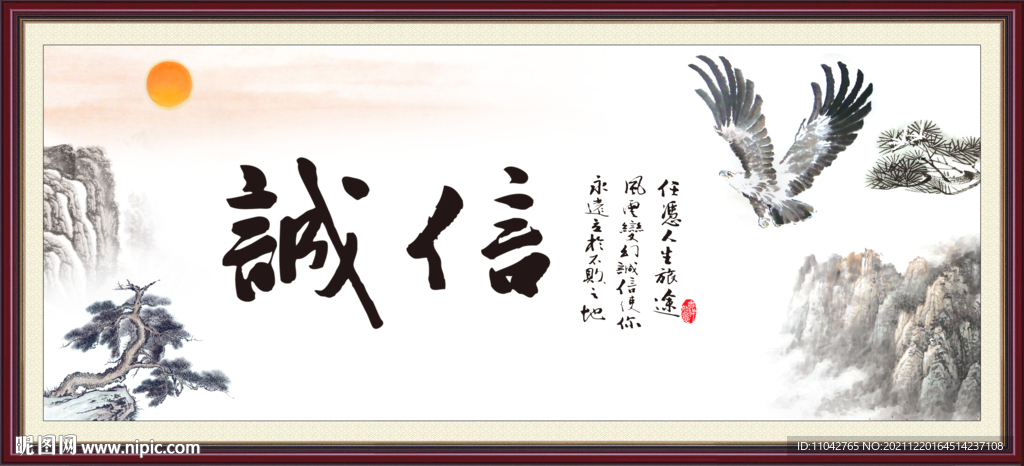 誠信
任憑人生旅途
風雲變幻誠信使你
永遠立於不敗之地
昵图网 www.nipic.com
ID:11042765 NO:20211220164514237108